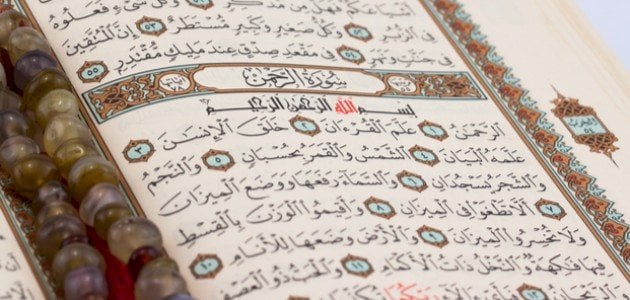 أَشْيَاعَكُمْ فَهَلْ مِن مُّدَّكِرٍ ٥١ وَكُلُّ شَيْءٍ فَعَلُوهُ
فِي الزُّبُرِ ٥٢ وَكُلُّ صَغِيرٍ وَكَبِيرٍ مُّسْتَطَرٌ ٥٣ إِنَّ الْمُتَّقِينَ
فِي جَنَّٰتٍ وَنَهَرٍ ٥٤ فِي مَقْعَدِ صِدْقٍ عِندَ مَلِيكٍ مُّقْتَدِرٍ ٥٥
سُورَةُ الرَّحْمَٰن
بِسْمِ اللَّهِ الرَّحْمَٰنِ الرَّحِيمِ
الرَّحْمَٰنُ ١ عَلَّمَ الْقُرْءَانَ ٢ خَلَقَ الْإِنسَٰنَ ٣
عَلَّمَهُ الْبَيَانَ ٤ الشَّمْسُ وَالْقَمَرُ بِحُسْبَانٍ ٥ وَالنَّجْمُ
وَالشَّجَرُ يَسْجُدَانِ ٦ وَالسَّمَآءَ رَفَعَهَا وَوَضَعَ الْمِيزَانَ
٧ أَلَّا تَطْغَوْا فِي الْمِيزَانِ ٨ وَأَقِيمُوا الْوَزْنَ بِالْقِسْطِ
وَلَا تُخْسِرُوا الْمِيزَانَ ٩ وَالْأَرْضَ وَضَعَهَا لِلْأَنَامِ ١٠
فِيهَا فَٰكِهَةٌ وَالنَّخْلُ ذَاتُ الْأَكْمَامِ ١١ وَالْحَبُّ ذُو الْعَصْفِ